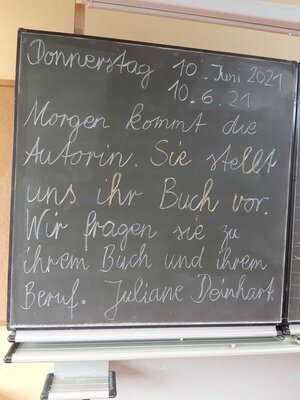 Donnerstag 10. Juni 2021
10.6.21
Morgen kommt die
Autorin. Sie stellt
uns ihr Buch vor.
Wir fragen sie zu
ihrem Buch und ihrem
Beruf. Juliane Deinhart